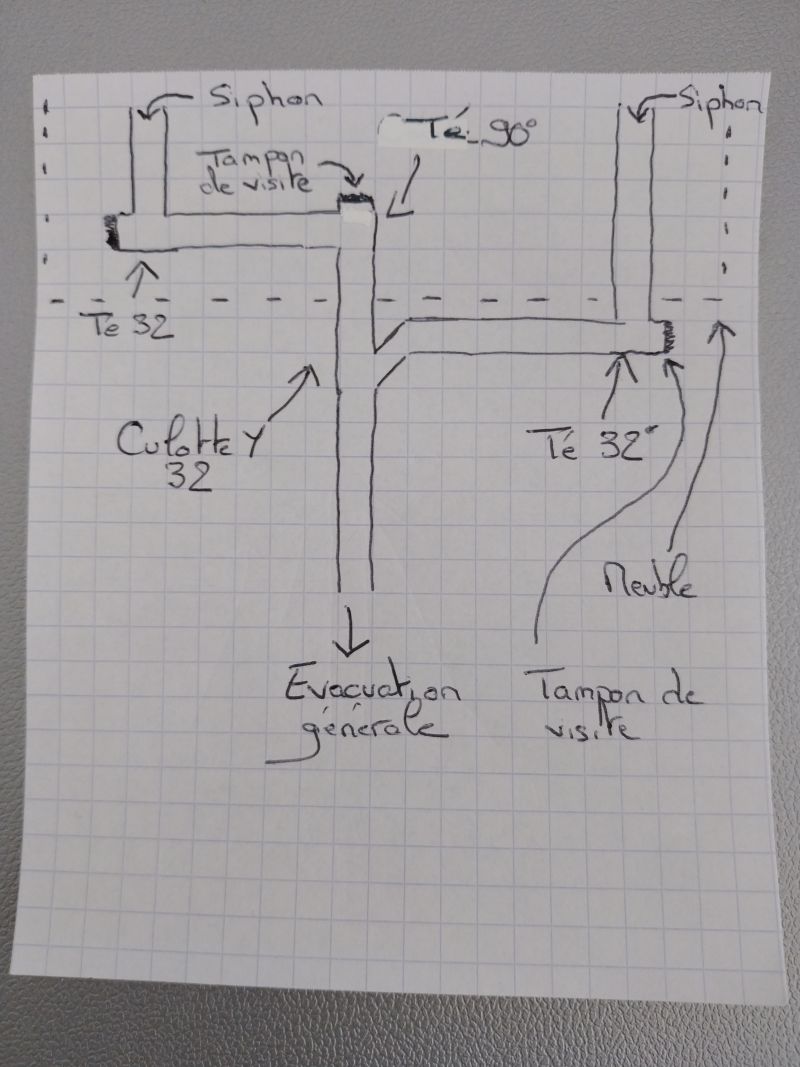 Siphon
Siphon
Té 90°
Tampon
de visite
Te 32
Culotte Y
32
Té 32
Meuble
Evacuation
générale
Tampon de
visite